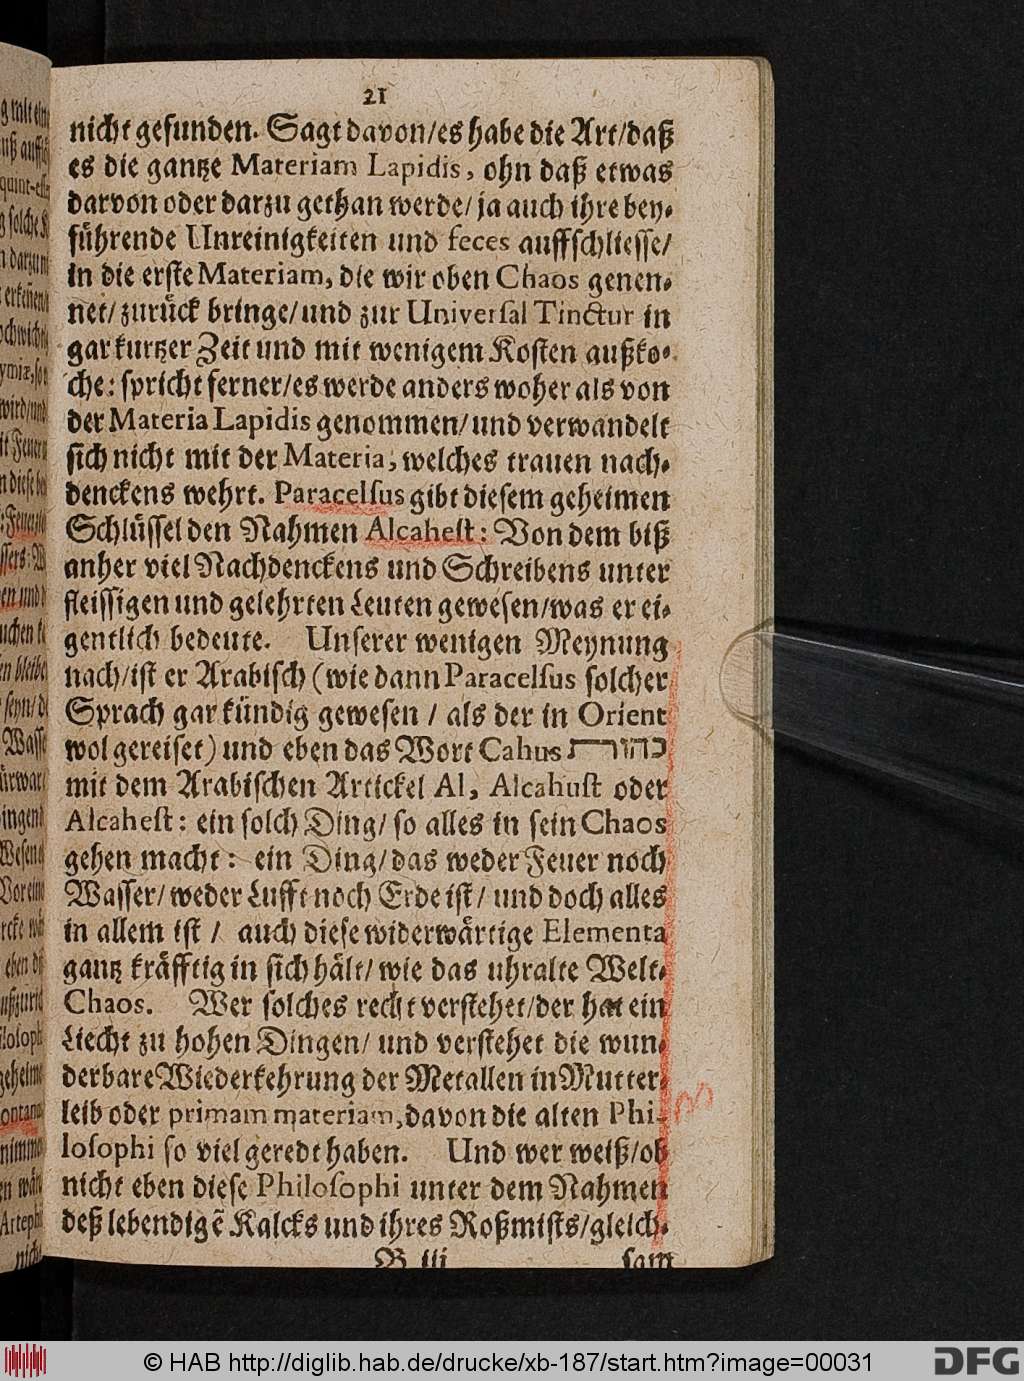 21
nicht gefunden. Sagt davon/es habe die Art/daß
es die gantze Materiam Lapidis, ohn daß etwas
darvon oder darzu gethan werde/ ja auch ihre bey-
führende Unreinigkeiten und feces auffschliesse/
in die erste Materiam, die wir oben Chaos genen-
net/ zurück bringe/ und zur Universal Tinctur in
gar kurtzer Zeit und mit wenigem Kosten außko-
che: spricht ferner/es werde anders woher als von
der Materia Lapidis genommen/ und verwandelt
sich nicht mit der Materia, welches trauen nach-
denckens wehrt. Paracelsus gibt diesem geheimen
Schlüssel den Nahmen Alcahest: Von dem biß
anher viel Nachdenckens und Schreibens unter
fleissigen und gelehrten Leuten gewesen/was er ei-
gentlich bedeute. Unserer wenigen Meynung
nach/ist er Arabisch (wie dann Paracelsus solcher
Sprach gar kündig gewesen / als der in Orient
wol gereiset) und eben das Wort Cahus
mit dem Arabischen Artickel Al, Alcahust oder
Alcahest: ein solch Ding/ so alles in sein Chaos
gehen macht: ein Ding/das weder Feuer noch
Wasser/ weder Lufft noch Erde ist/ und doch alles
in allem ist / auch diese widerwärtige Elementa
gantz kräfftig in sich hält/ wie das uhralte Welt-
Chaos. Wer solches recht verstehet/der hat ein
Liecht zu hohen Dingen/ und verstehet die wun-
derbare Wiederkehrung der Metallen in Mutter-
leib oder primam materiam, davon die alten Phi-
losophi so viel geredt haben. Und wer weiß/ob
nicht eben diese Philosophi unter dem Nahmen
deß lebendigẽ Kalcks und ihres Roßmists/gleich-
B iij sam
© HAB http://diglib.hab.de/drucke/xb-187/start.htm?image=00031
DFG